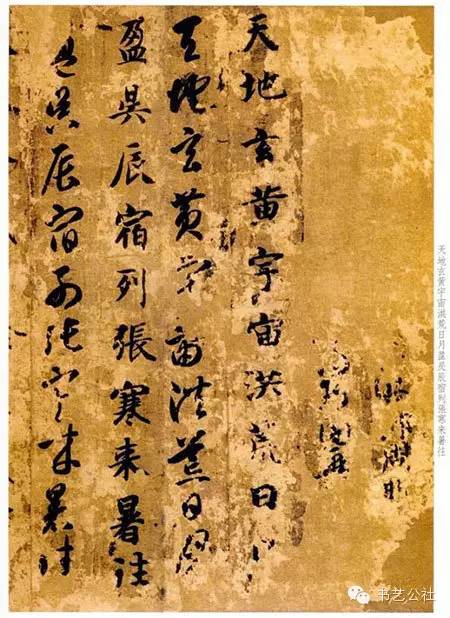 天地玄黄宇宙洪荒日月盈昃辰宿列張寒来暑往
天地玄黄宇宙洪荒日月
天地玄黄宇宙洪荒日月
盈昃辰宿列張寒来暑往
盈昃辰宿列張寒来暑往
书艺公社